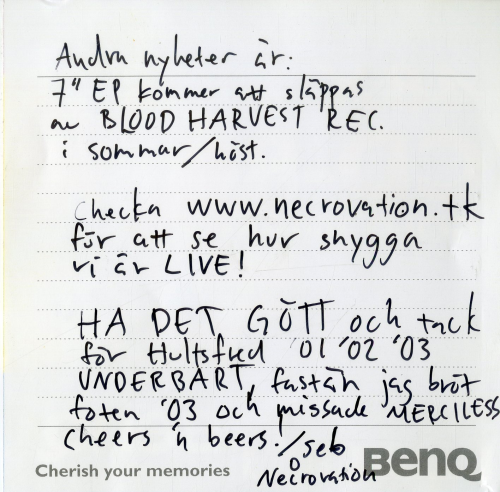 Andra nyheter är:
7" EP kommer att släppas
av BLOOD HARVEST REC.
i sommar/höst.
Checka www.necrovation.tk
för att se hur snygga
vi är LIVE!
HA DET GÖTT och tack
för Hultsfred '01 '02 '03
UNDERBART, fastän jag bröt
foten '03 och missade MERCILESS
cheers 'n beers. / seb
Necrovation
Cherish your memories BenQ